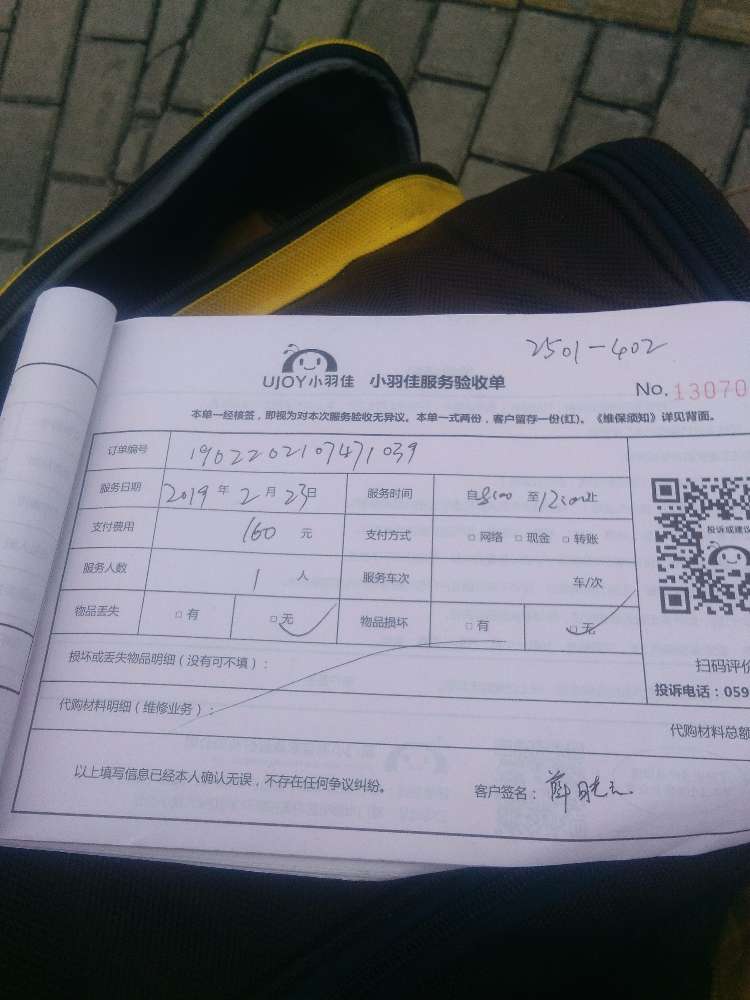 2501-402
UJOY小羽佳 小羽佳服务验收单
No. 13070
本单一经核签，即视为对本次服务验收无异议。本单一式两份，客户留存一份(红)。《维保须知》详见背面。
订单编号 19022202107471039
服务日期 2019年2月23日 服务时间 自8:00至12:00止
支付费用 160元 支付方式 □网络 □现金 □转账
投诉或建议
服务人数 1人 服务车次 车/次
物品丢失 □有 □无 物品损坏 □有 □无
损坏或丢失物品明细（没有可不填）：
扫码评价
投诉电话：059
代购材料明细（维修业务）：
代购材料总额
以上填写信息已经本人确认无误，不存在任何争议纠纷。
客户签名：